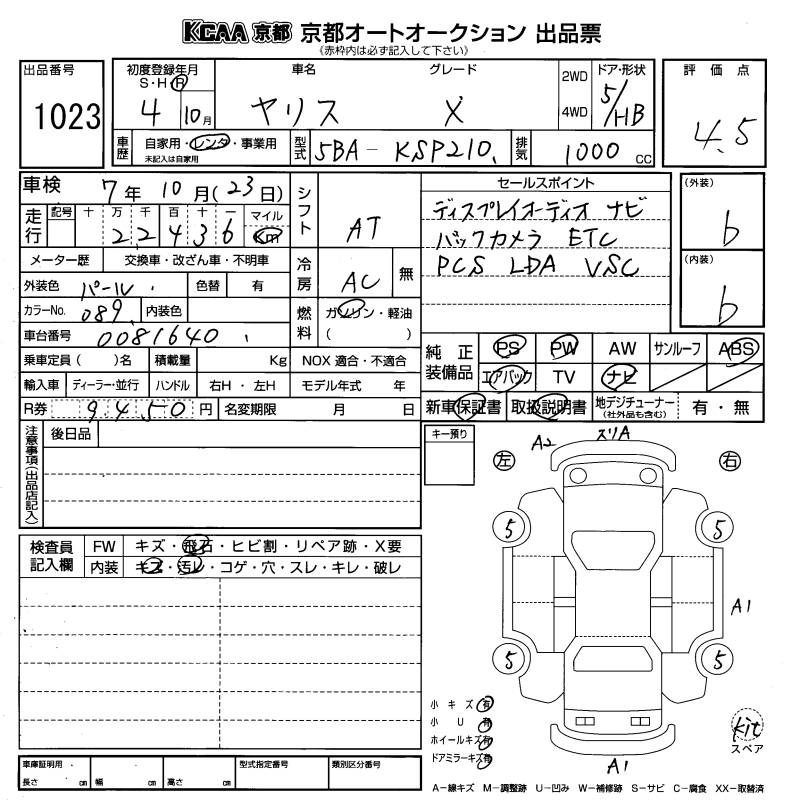 KCAA 京都 京都オートオークション 出品票
(赤枠内は必ず記入して下さい)
出品番号
1023
初度登録年月
S・H・R
4 10月
車名
ヤリス
グレード
X
2WD
4WD
ドア・形状
5/HB
評価点
4.5
車歴
自家用・レンタ・事業用
未記入は自家用
型式
5BA-KSP210
排気
1000 CC
車検 7年 10月(23日)
走行
記号 十 万 千 百 十 一 マイル
2 2 4 3 6 Km
メーター歴 交換車・改ざん車・不明車
外装色 パール 色替 有
カラーNo. 089 内装色
車台番号 0081640
乗車定員 ( )名 積載量 Kg
輸入車 ディーラー・並行 ハンドル 右H・左H
R券 9450円 名変期限 月 日
シフト AT
冷房 AC 無
燃料 ガソリン・軽油
( )
NOX 適合・不適合
モデル年式 年
セールスポイント
ディスプレイオーディオ ナビ
バックカメラ ETC
PCS LDA VSC
(外装)
b
(内装)
b
純正装備品
PS PW AW サンルーフ ABS
エアバック TV ナビ
新車保証書 取扱説明書 地デジチューナー(社外品も含む) 有・無
注意事項(出品店記入)
後日品
キー預り
検査員記入欄
FW キズ・飛石・ヒビ割・リペア跡・X要
内装 キズ・汚レ・コゲ・穴・スレ・キレ・破レ
左 右
A2 スリA
5 5
A1
5 5
A1
小キズ 有
小U 有
ホイールキズ 有
ドアミラーキズ 有
kit
スペア
車庫証明用
長さ cm 幅 cm 高さ cm
型式指定番号
類別区分番号
A-線キズ M-調整跡 U-凹み W-補修跡 S-サビ C-腐食 XX-取替済